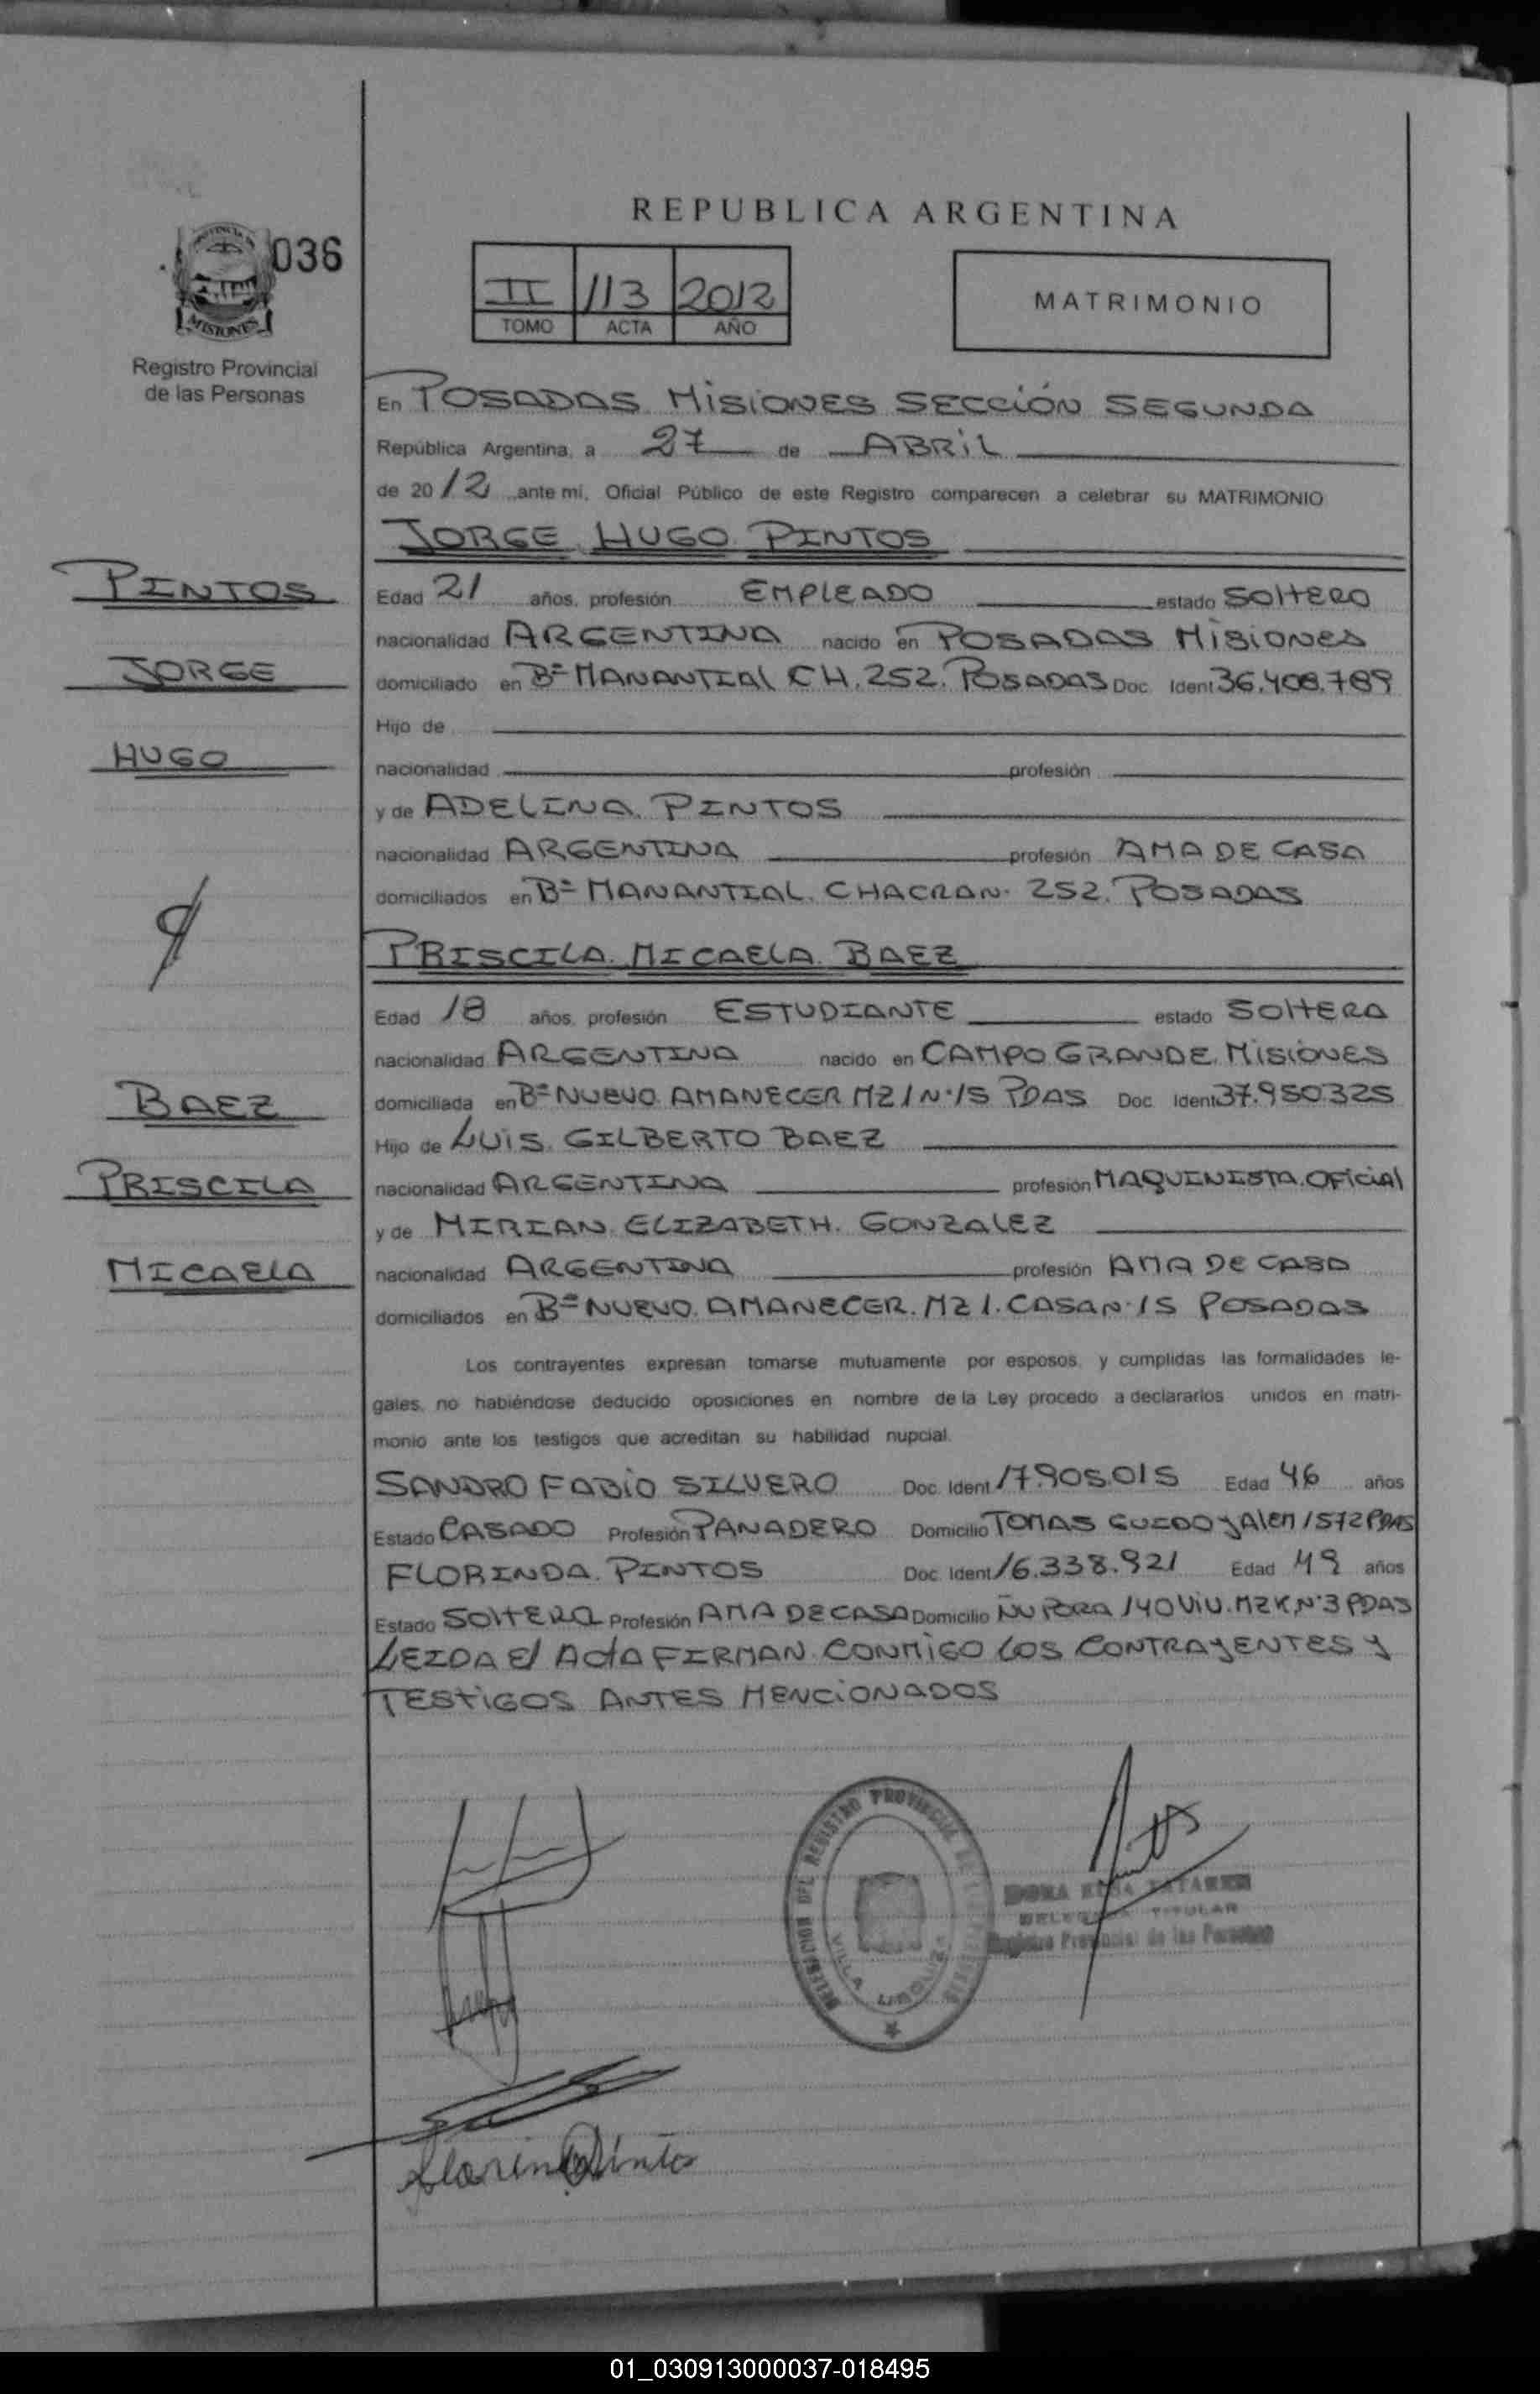 REPUBLICA ARGENTINA
036
PROVINCIA DE
MISIONES
Registro Provincial
de las Personas
II 113 2012
TOMO ACTA AÑO
MATRIMONIO
En POSADAS MISIONES SECCIÓN SEGUNDA
República Argentina, a 27 de ABRIL
de 2012 ante mi, Oficial Público de este Registro comparecen a celebrar su MATRIMONIO
JORGE HUGO PINTOS
PINTOS
Edad 21 años, profesión EMPLEADO estado SOLTERO
nacionalidad ARGENTINA nacido en POSADAS MISIONES
JORGE
domiciliado en Bº MANANTIAL CH. 252. POSADAS Doc. Ident 36.408.789
Hijo de
HUGO
nacionalidad profesión
y de ADELINA PINTOS
nacionalidad ARGENTINA profesión AMA DE CASA
domiciliados en Bº MANANTIAL. CHACRAN· 252. POSADAS
PRISCILA MICAELA BAEZ
Edad 18 años, profesión ESTUDIANTE estado SOLTERA
nacionalidad ARGENTINA nacido en CAMPO GRANDE MISIONES
BAEZ
domiciliada en Bº NUEVO AMANECER MZ 1 N·15 PDAS Doc. Ident 37.950325
Hijo de LUIS GILBERTO BAEZ
PRISCILA
nacionalidad ARGENTINA profesión MAQUINISTA OFICIAL
y de MIRIAN ELIZABETH. GONZALEZ
MICAELA
nacionalidad ARGENTINA profesión AMA DE CASA
domiciliados en Bº NUEVO. AMANECER. MZ 1. CASAN·15 POSADAS
Los contrayentes expresan tomarse mutuamente por esposos, y cumplidas las formalidades le-
gales, no habiéndose deducido oposiciones en nombre de la Ley procedo a declararlos unidos en matri-
monio ante los testigos que acreditan su habilidad nupcial.
SANDRO FABIO SILVERO Doc. Ident 17.905.015 Edad 46 años
Estado CASADO Profesión PANADERO Domicilio TOMAS GUIDO y ALEM 1572 PDAS
FLORINDA PINTOS Doc. Ident 16.338.921 Edad 49 años
Estado SOLTERA Profesión AMA DE CASA Domicilio ÑU PORA 140 VIV. MZ K, N·3 PDAS
LEIDA El ActA FIRMAN CONMIGO LOS CONTRAYENTES y
TESTIGOS ANTES MENCIONADOS
DELEGACION DEL REGISTRO PROVINCIAL DE LAS PERSONAS
VILLA
DORA
DELEGADA TITULAR
Registro Provincial de las Personas
01_030913000037-018495